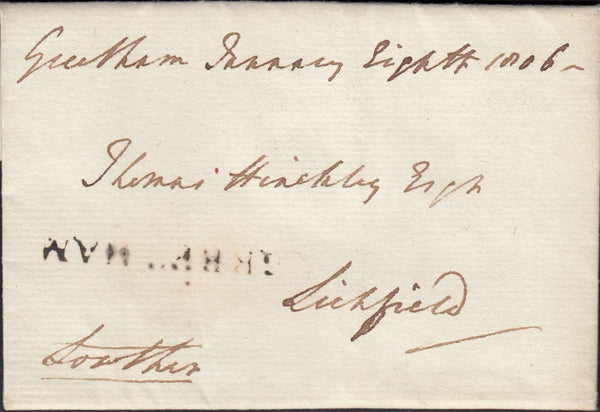 Greetham January Eighth 1806
Thomas Hinckley Esqr
GREETHAM
Lichfield
Lowther